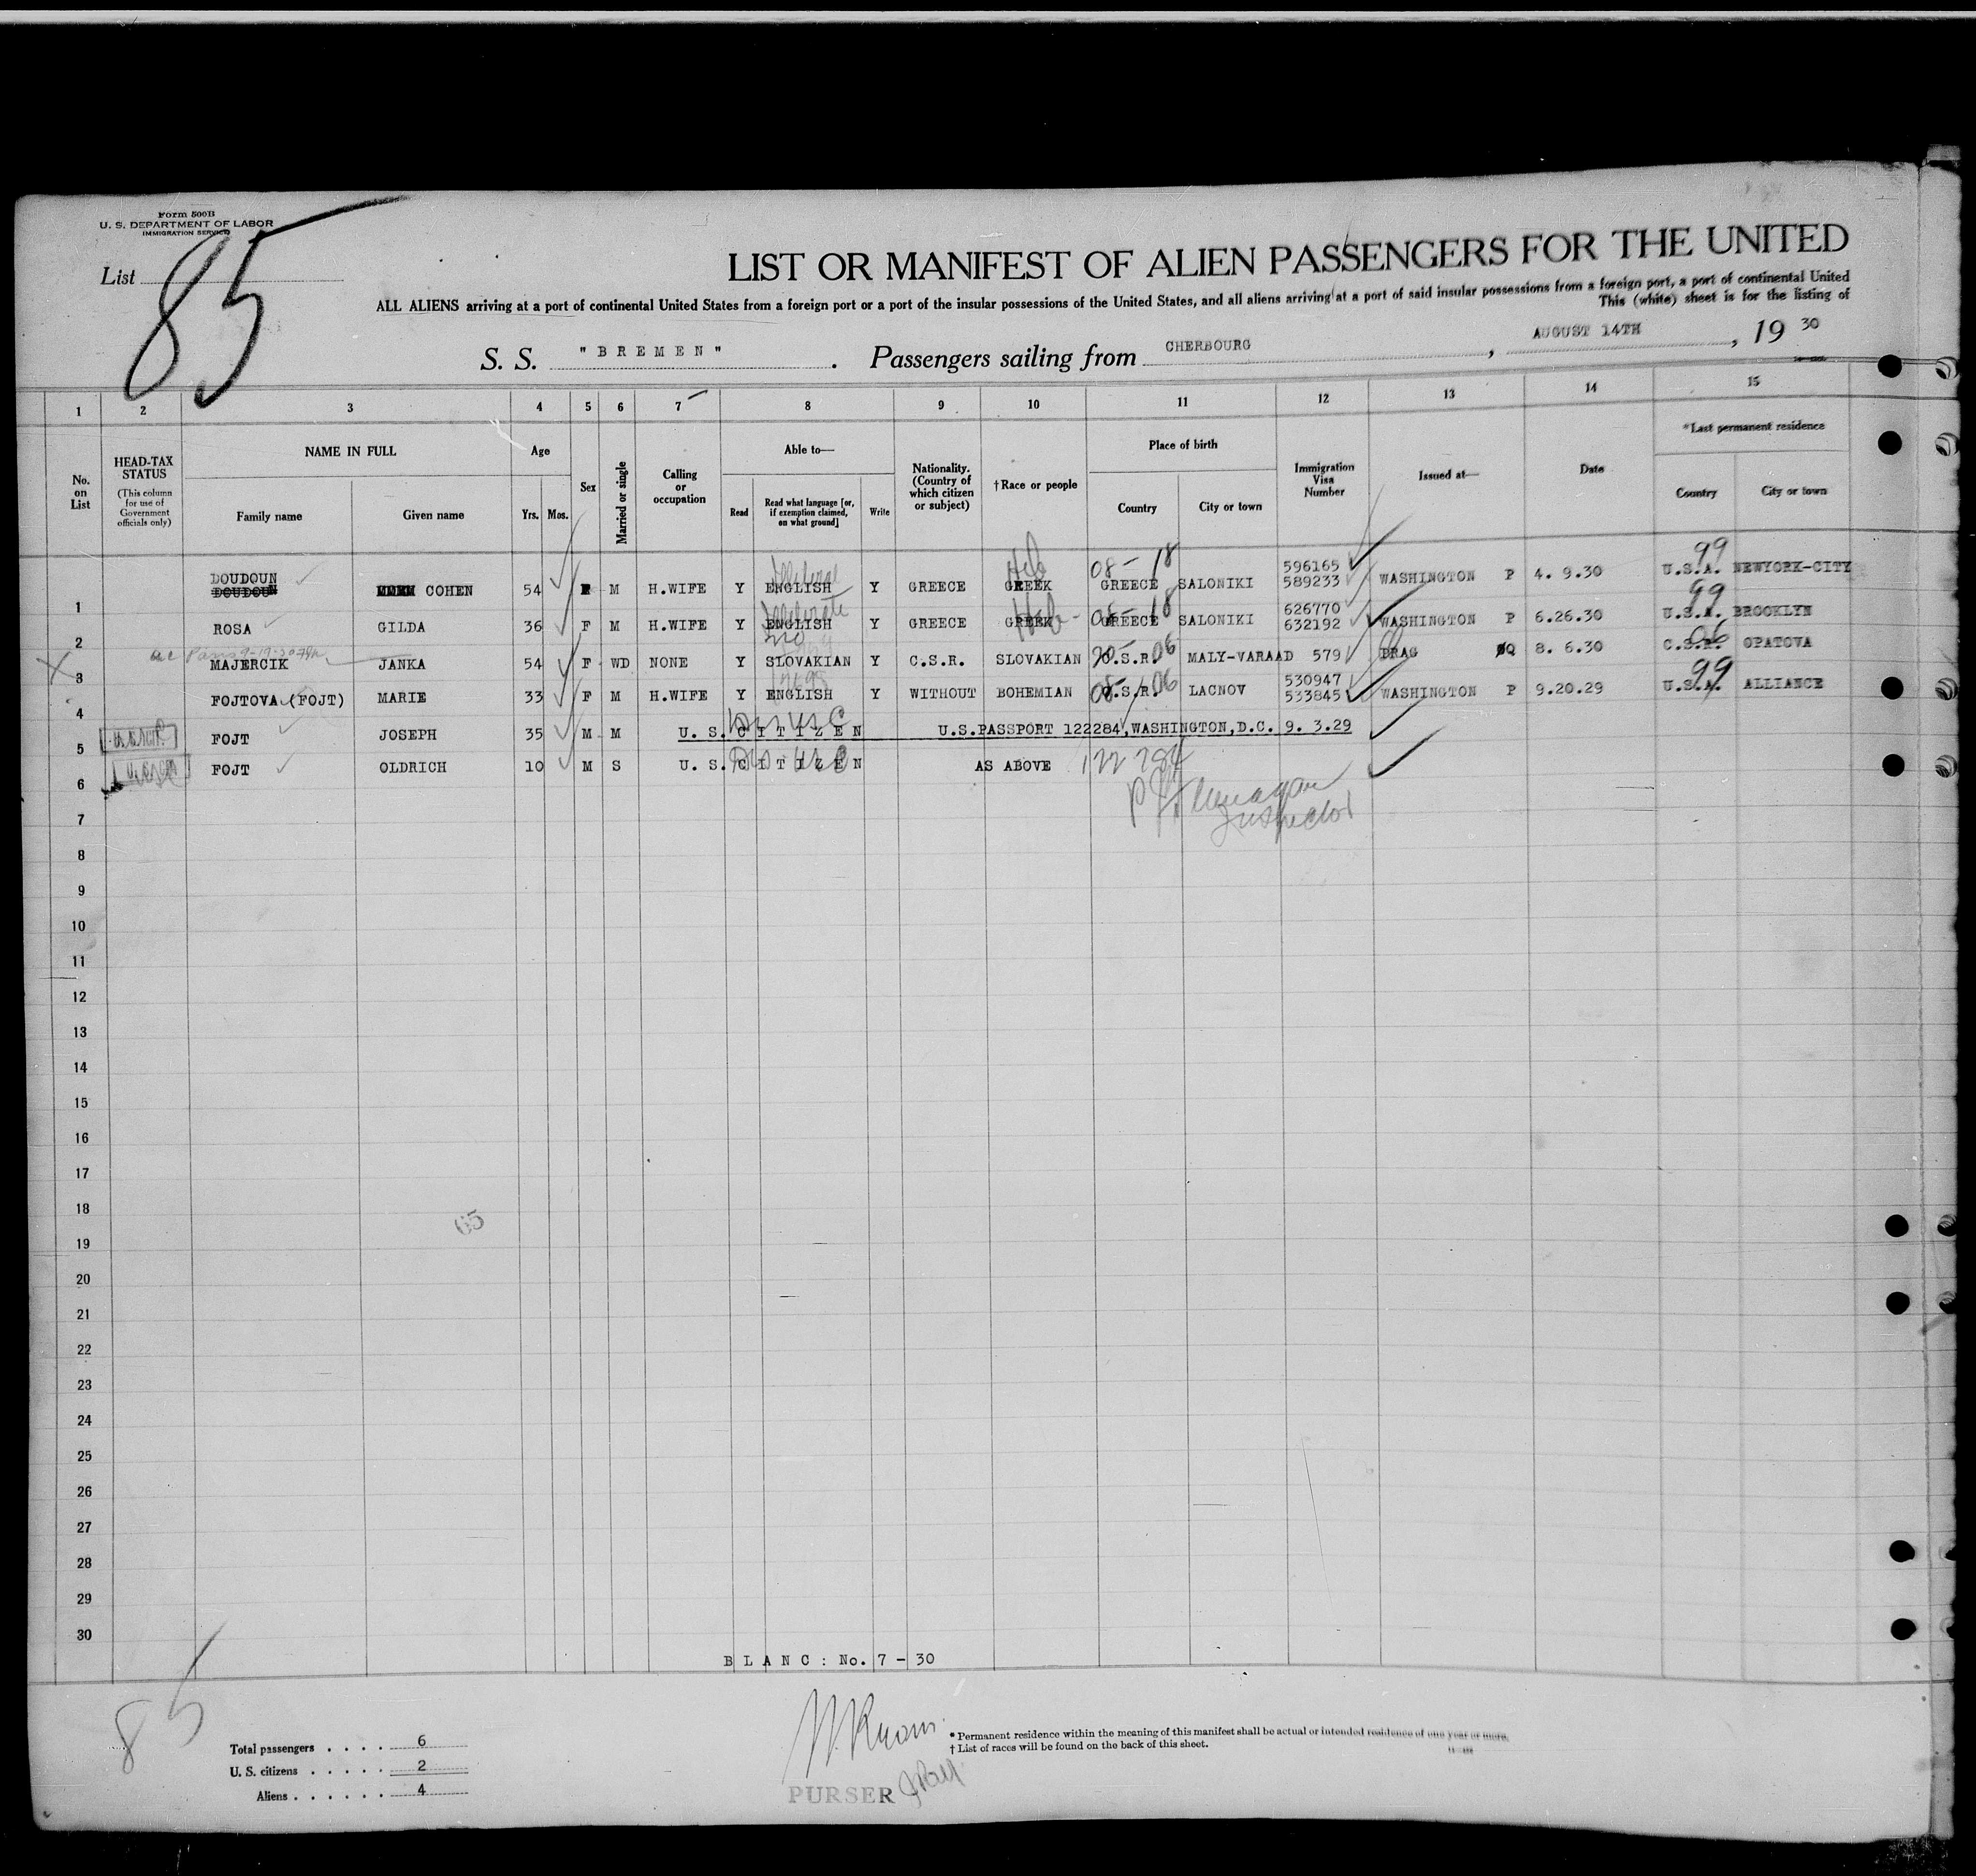 Form 500B
U. S. DEPARTMENT OF LABOR
IMMIGRATION SERVICE
List 85
LIST OR MANIFEST OF ALIEN PASSENGERS FOR THE UNITED
ALL ALIENS arriving at a port of continental United States from a foreign port or a port of the insular possessions of the United States, and all aliens arriving at a port of said insular possessions from a foreign port, a port of continental United
This (white) sheet is for the listing of
S. S. "BREMEN". Passengers sailing from CHERBOURG, AUGUST 14TH, 19 30
1 2 3 4 5 6 7 8 9 10 11 12 13 14 15
No. on List
HEAD-TAX STATUS (This column for use of Government officials only)
NAME IN FULL
Family name Given name
Age
Yrs. Mos.
Sex
Married or single
Calling or occupation
Able to—
Read Read what language [or, if exemption claimed, on what ground] Write
Nationality. (Country of which citizen or subject)
†Race or people
Place of birth
Country City or town
Immigration Visa Number
Issued at—
Date
*Last permanent residence
Country City or town
Heb 08- 18 99
1 DOUDOUN DOUDOUN COHEN 54 F M H.WIFE Y ENGLISH Y GREECE GREEK GREECE SALONIKI 596165 589233 WASHINGTON P 4. 9.30 U.S.A. NEWYORK-CITY
Illiterate Heb- 08- 18 99
2 ROSA GILDA 36 F M H.WIFE Y ENGLISH Y GREECE GREEK GREECE SALONIKI 626770 632192 WASHINGTON P 6.26.30 U.S.A. BROOKLYN
06 06
X 3 MAJERCIK JANKA 54 F WD NONE Y SLOVAKIAN Y C.S.R. SLOVAKIAN C.S.R. MALY-VARAAD 579 PRAG Q 8. 6.30 C.S.R. OPATOVA
08- 06 99
4 FOJTOVA (FOJT) MARIE 33 F M H.WIFE Y ENGLISH Y WITHOUT BOHEMIAN C.S.R. LACNOV 530947 533845 WASHINGTON P 9.20.29 U.S.A. ALLIANCE
5 FOJT JOSEPH 35 M M U. S. CITIZEN U.S.PASSPORT 122284, WASHINGTON, D.C. 9. 3.29
6 FOJT OLDRICH 10 M S U. S. CITIZEN AS ABOVE 122284
Inspector
7
8
9
10
11
12
13
14
15
16
17
18
65
19
20
21
22
23
24
25
26
27
28
29
30
BLANC: No. 7 - 30
85
Total passengers . . . . 6
U. S. citizens . . . . . 2
Aliens . . . . . . 4
PURSER
* Permanent residence within the meaning of this manifest shall be actual or intended residence of one year or more.
† List of races will be found on the back of this sheet.